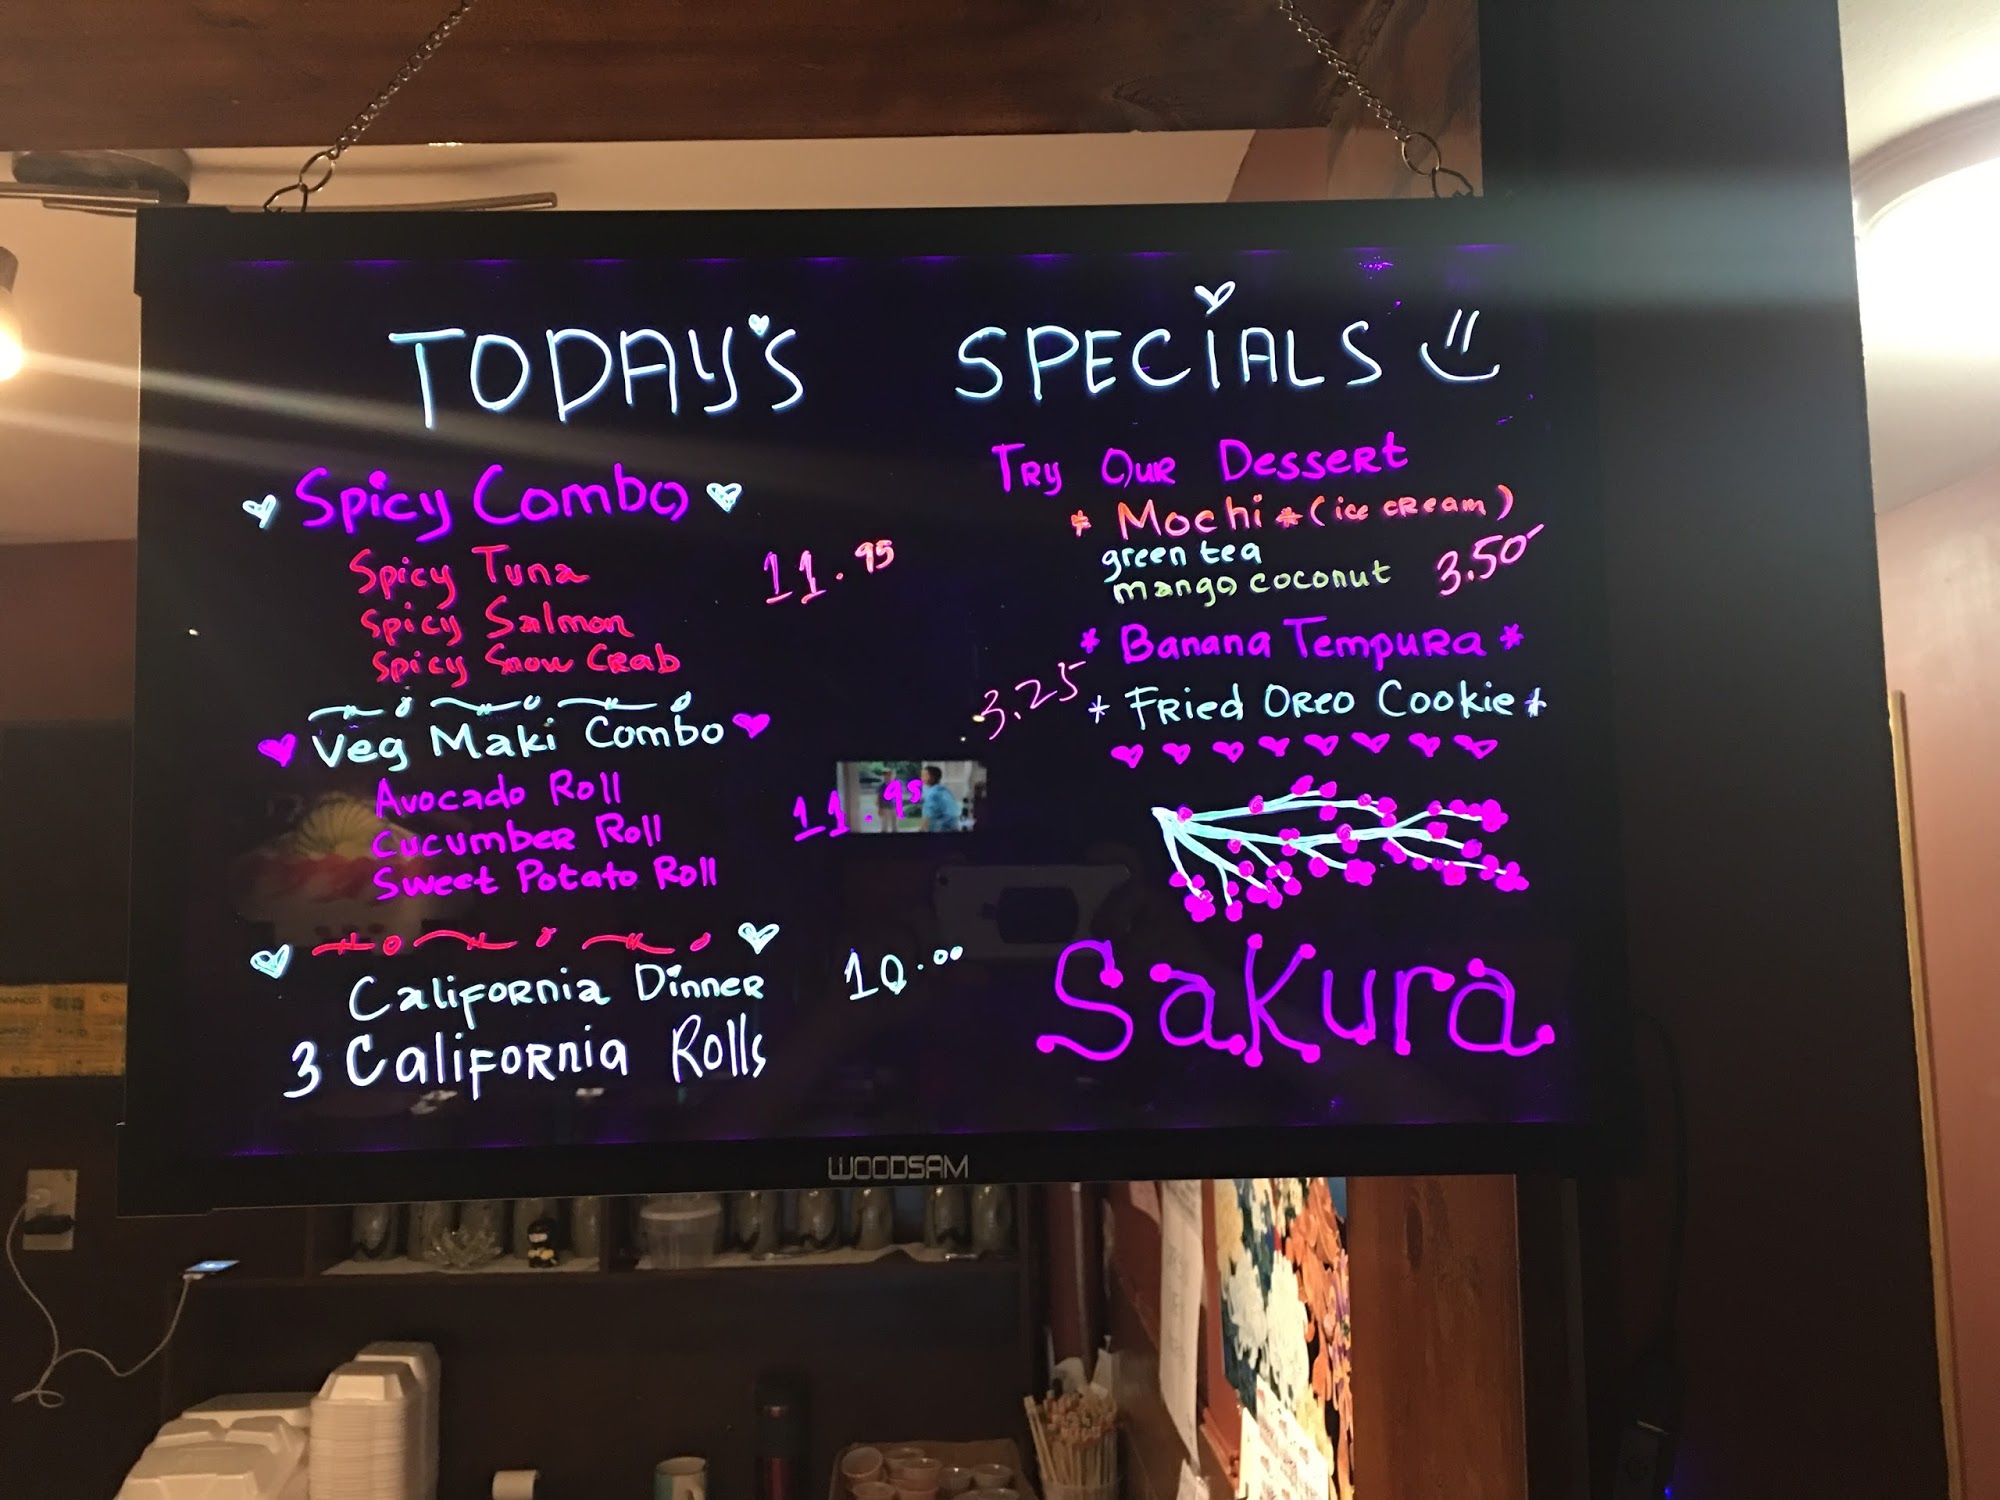 TODAY'S SPECIALS
Spicy Combo
Spicy Tuna 11.95
Spicy Salmon
Spicy Snow Crab
Veg Maki Combo
Avocado Roll
Cucumber Roll 11.95
Sweet Potato Roll
California Dinner 10.00
3 California Rolls
Try Our Dessert
* Mochi * (ice cream)
green tea
mango coconut 3.50
* Banana Tempura *
3.25 * Fried Oreo Cookie *
Sakura
WOODSAM